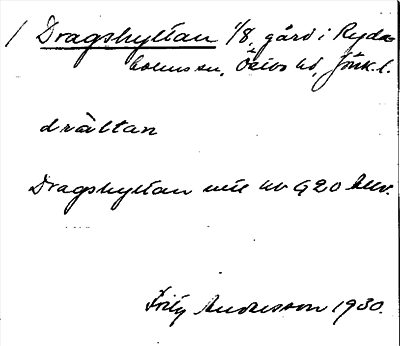 / Dragshyltan 1/8, gård i Ryda-
holms sn, Östbo hd, Jönk. l.
drältan
Dragshyltan ute hv G20 bllv.
Fritz Andersson 1930.